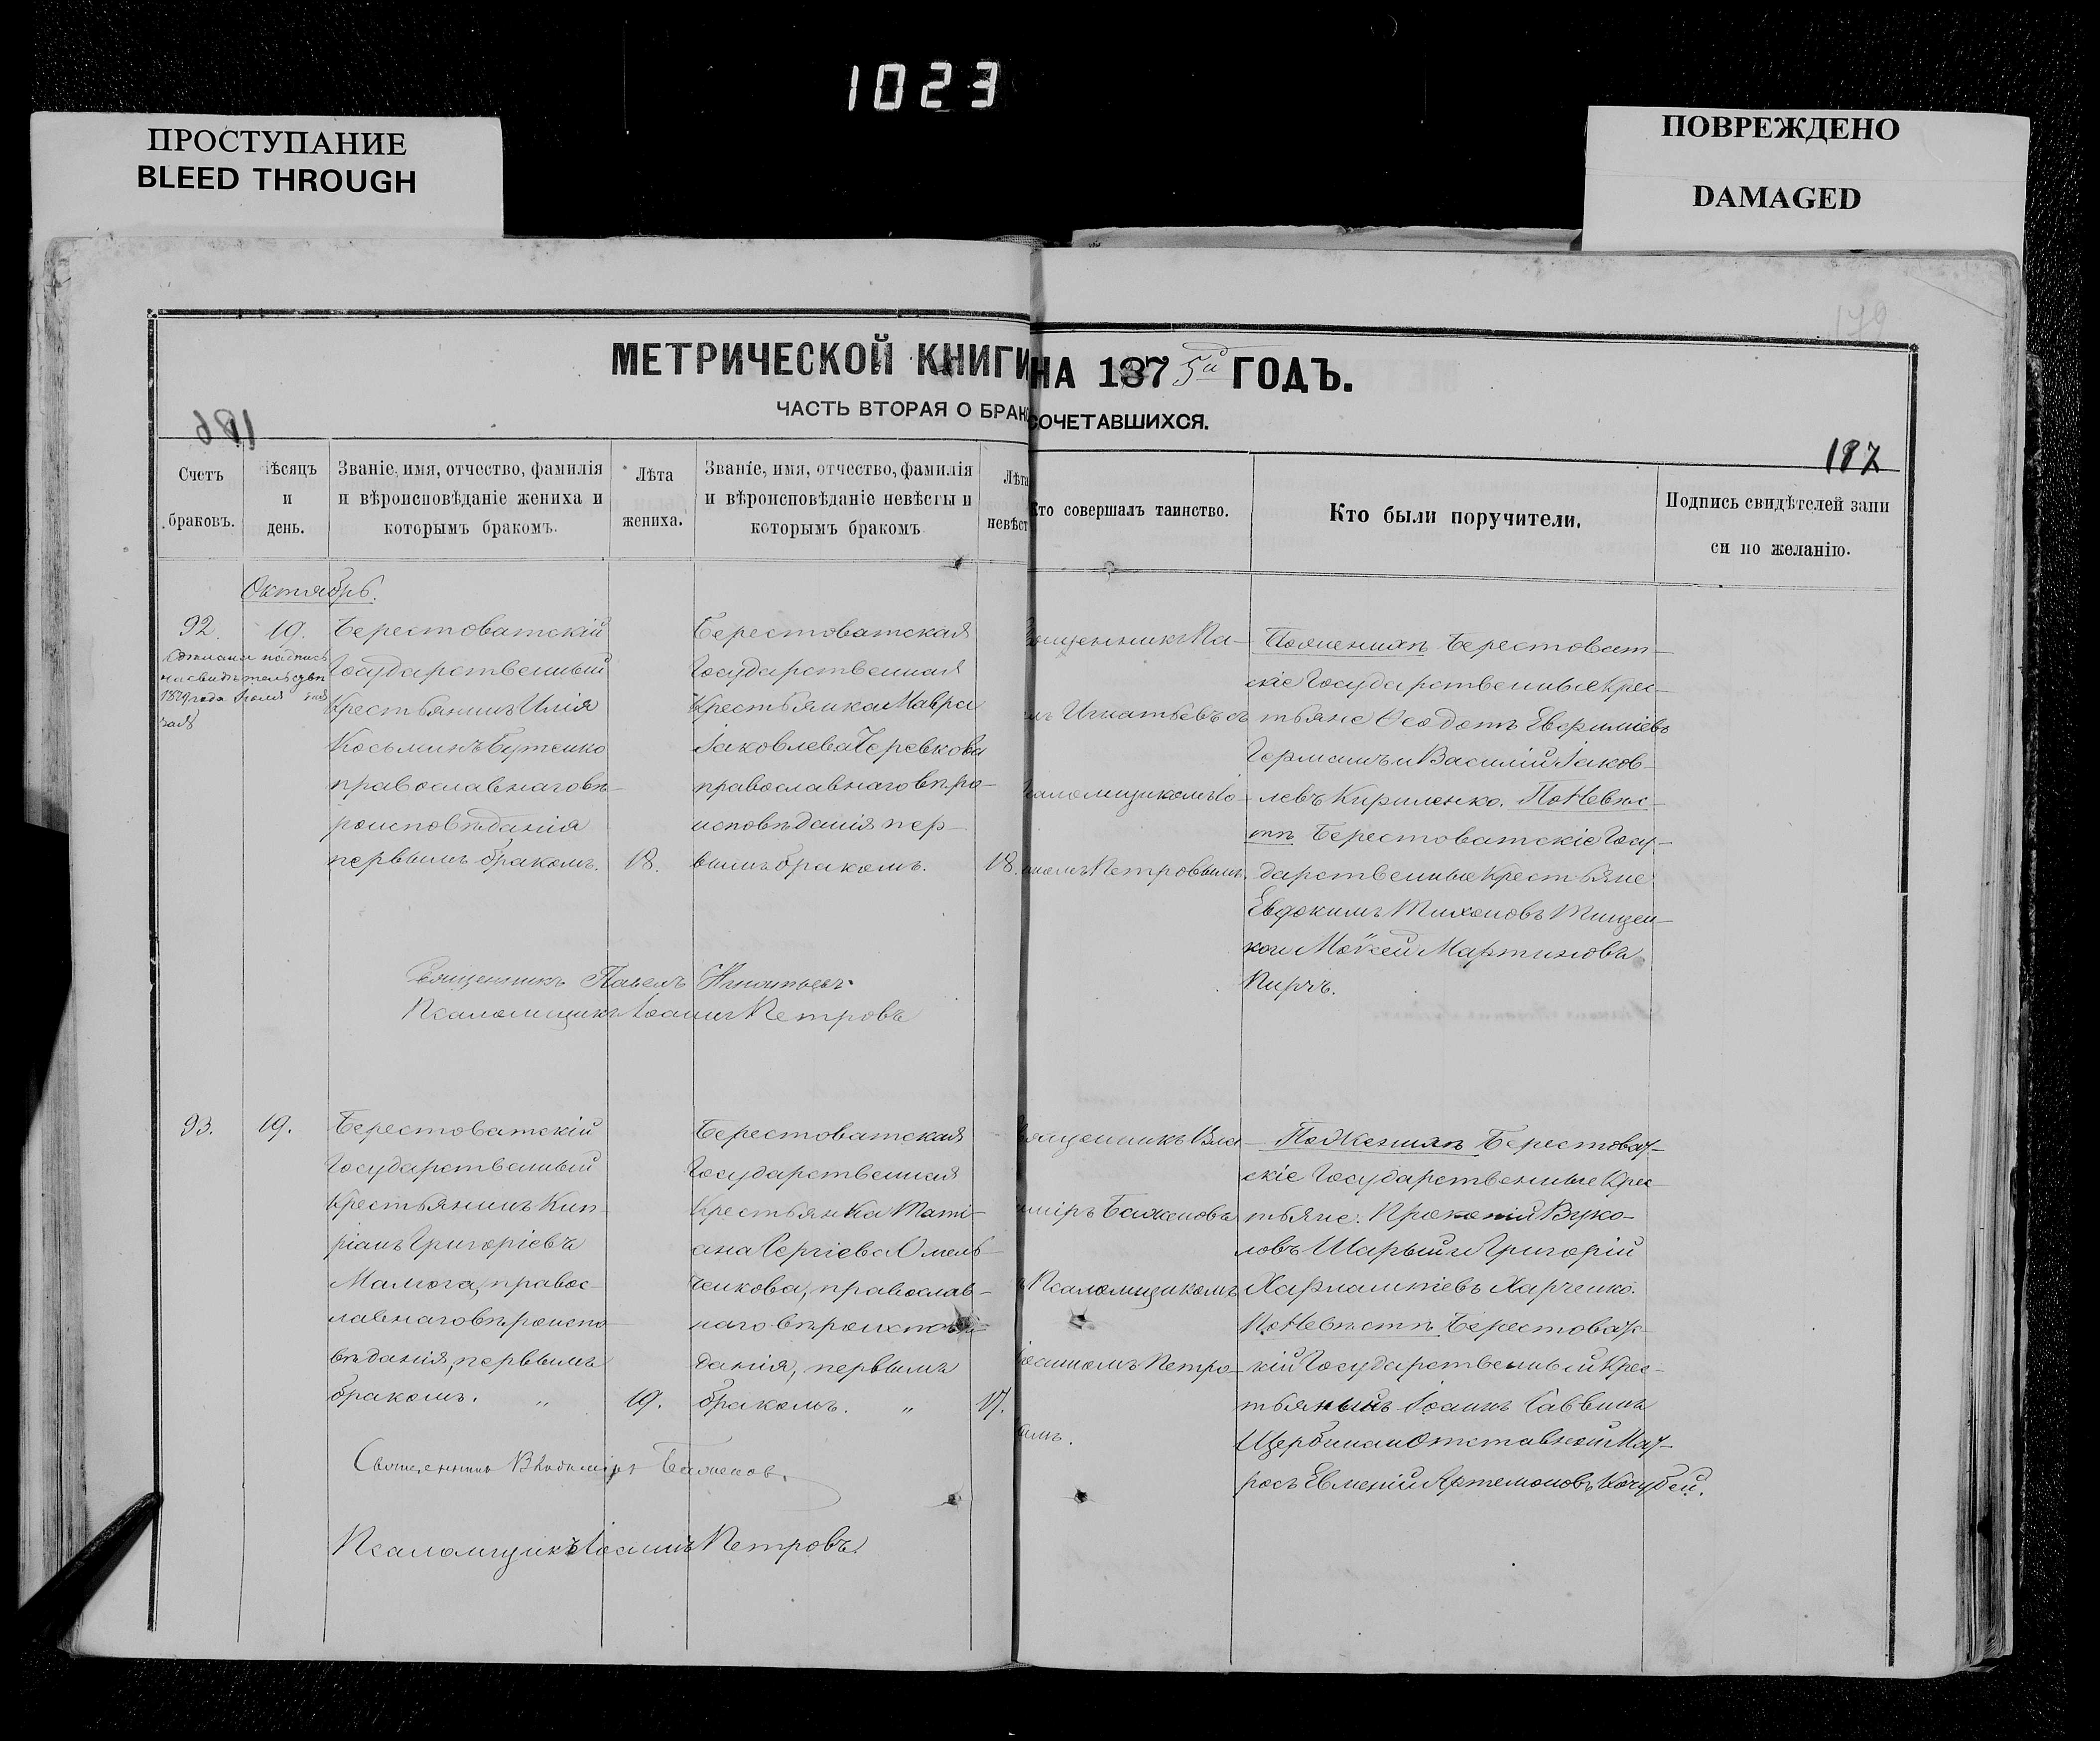 1023
ПРОСТУПАНИЕ
BLEED THROUGH
ПОВРЕЖДЕНО
DAMAGED
179
МЕТРИЧЕСКОЙ КНИГИ НА 1875й ГОДЪ.
ЧАСТЬ ВТОРАЯ О БРАКОСОЧЕТАВШИХСЯ.
186
187
Счетъ
браковъ.
Мѣсяцъ
и
день.
Званіе, имя, отчество, фамилія
и вѣроисповѣданіе жениха и
которымъ бракомъ.
Лѣта
жениха.
Званіе, имя, отчество, фамилія
и вѣроисповѣданіе невѣсты и
которымъ бракомъ
Лѣта
невѣст
Кто совершалъ таинство.
Кто были поручители.
Подпись свидѣтелей запи
си по желанію.
Октябрь.
92.
надпись
1879 года
19.
Берестоватскій
Государственный
Крестьянинъ Илія
Косьминъ Бутенко
православнаго вѣ-
роисповѣданія
первымъ бракомъ.
18.
Берестоватская
Государственная
Крестьянка Мавра
Іаковлева Черевкова
православнаго вѣро-
исповѣданія пер-
вымъ бракомъ.
18.
Священникъ Па-
лъ Игнатьевъ съ
Псаломщикомъ Іо-
анномъ Петровымъ.
По женихѣ Берестоват-
скіе Государственные Крес-
тьяне Ѳеодотъ Евфиміевъ
Германъ и Василій Іаков-
левъ Кириленко. По Невѣс-
тѣ Берестоватскіе Госу-
дарственные Крестьяне
Евдокимъ Тихоновъ Тищен-
ко и Мокей Мартиновъ
Пирчъ.
Священникъ Павелъ Игнатьевъ
Псаломщикъ Іоаннъ Петровъ
93.
19.
Берестоватскій
Государственный
Крестьянинъ Кип-
ріанъ Григоріевъ
Малюга, правос-
лавнаго вѣроиспо-
вѣданія, первымъ
бракомъ. "
19.
Берестоватская
Государственная
Крестьянка Таті-
ана Сергіева Омель-
ченкова, православ-
наго вѣроисповѣ-
данія, первымъ
бракомъ. "
17.
Священникъ Вла-
диміръ Баженовъ
съ Псаломщикомъ
Іоанномъ Петро-
вымъ.
По Женихѣ Берестоват-
скіе Государственные Крес-
тьяне: Прокопій Вуко-
ловъ Шарый и Григорій
Харлампіевъ Харченко.
По Невѣстѣ Берестоватс-
кій Государственный Крес-
тьянинъ Іоаннъ Саввинъ
Щербина и Отставной Мат-
росъ Евменій Артемоновъ Кочубей.
Священникъ Владиміръ Баженов.
Псаломщикъ Іоаннъ Петровъ.